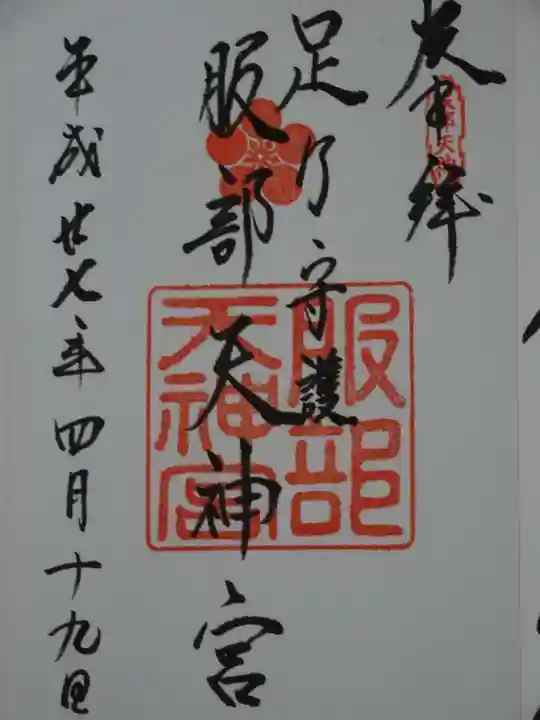 奉拝
足乃守護
服部天神宮
平成廿七年四月十九日
服部
天神宮